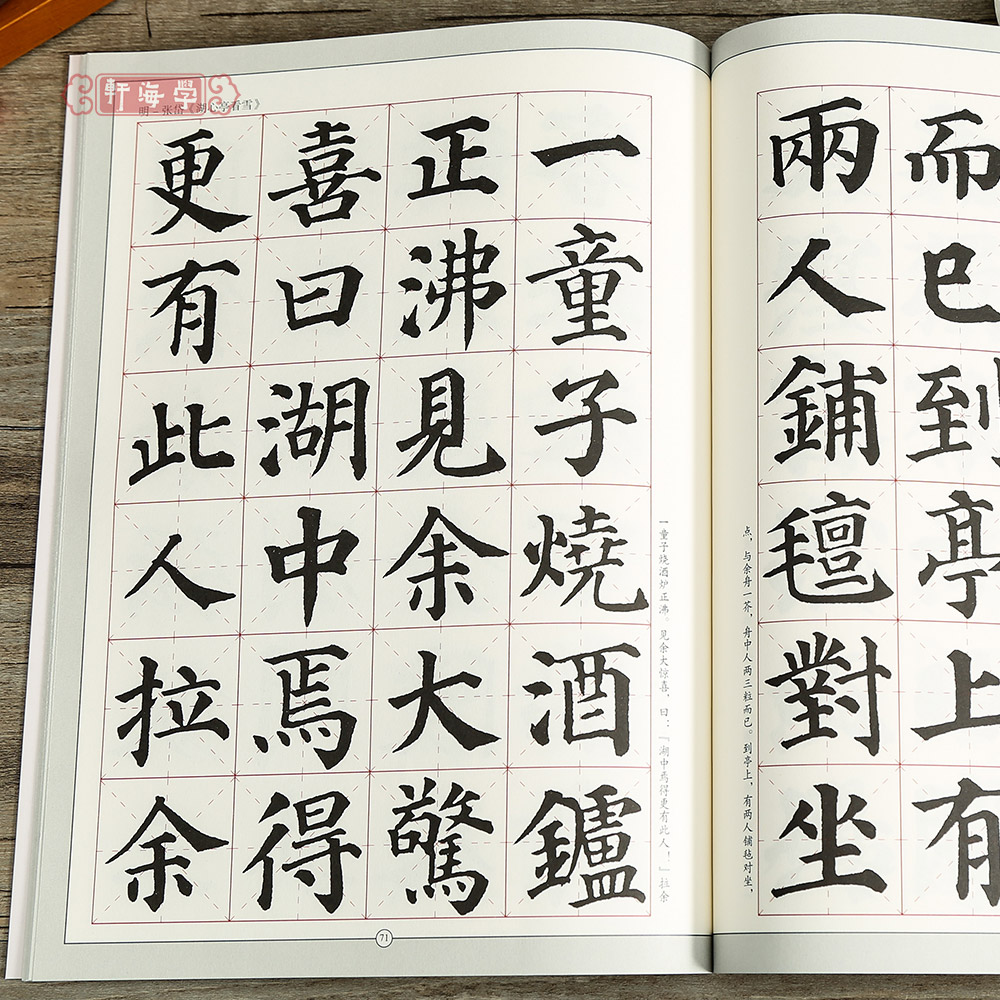 學海軒
明·张岱《湖心亭看雪》
而已到亭上有
兩人鋪氈對坐
点，与余舟一芥，舟中人两三粒而已。到亭上，有两人铺毡对坐，
一童子燒酒鑪
正沸見余大驚
喜曰湖中焉得
更有此人拉余
一童子烧酒炉正沸。见余大惊喜，曰：“湖中焉得更有此人！”拉余
71